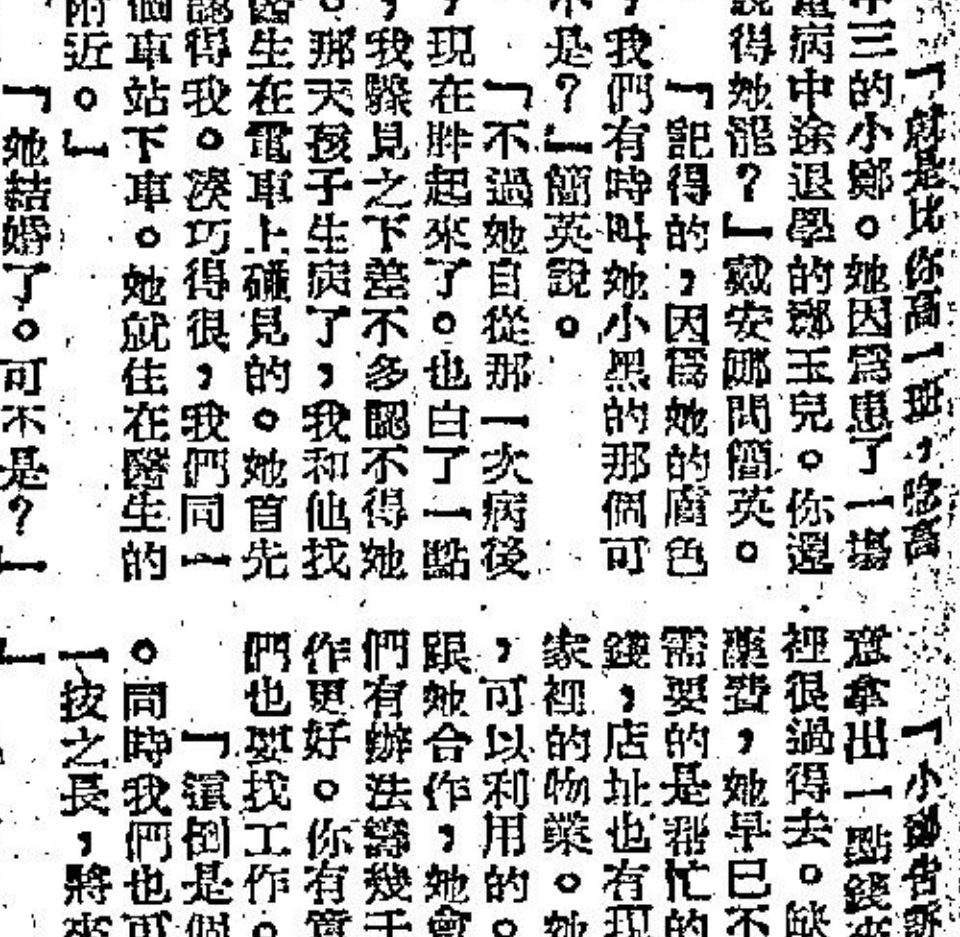 「就是比你高一班，唸高
中三的小鄭。她因爲患了一場
重病中途退學的鄭玉兒。你還
說得她罷？」戴安娜問簡英。
「記得的，因爲她的膚色
，我們有時叫她小黑的那個可
不是？」簡英說。
「不過她自從那一次病後
，現在胖起來了。也白了一點
，我驟見之下差不多認不得她
。那天孩子生病了，我和他找
醫生在電車上碰見的。她首先
認得我。湊巧得很，我們同一
個車站下車。她就住在醫生的
附近。」
「她結婚了。可不是？」
「小鄭告訴
意拿出一點錢來
裡很過得去。缺
藥費，她早已不
需要的是幫忙的
錢，店址也有現
家裡的物業。她
，可以利用的。
跟她合作，她會
們有辦法籌幾千
作更好。你有實
們也要找工作。
「這倒是個
。同時我們也可
一技之長，將來